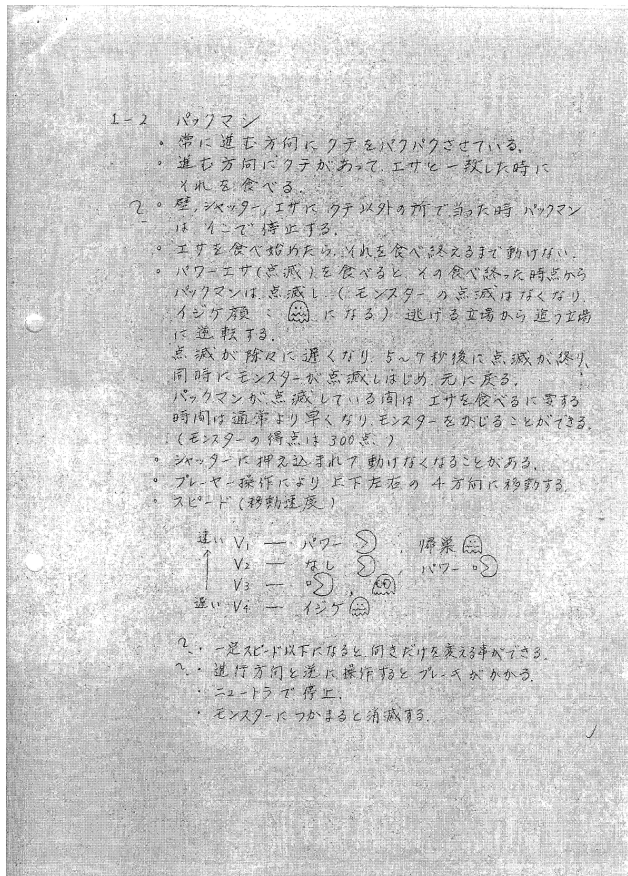 1-2 パックマン
・常に進む方向にクチをパクパクさせている。
・進む方向にクチがあって、エサと一致した時に
それを食べる。
?・壁、シャッター、エサにクチ以外の所で当った時 パックマン
は そこで停止する。
・エサを食べ始めたら、それを食べ終えるまで動けない。
・パワーエサ(点滅)を食べると、その食べ終った時点から
パックマンは 点滅し、(モンスターの点滅はなくなり、
イジケ顔: になる) 逃げる立場から追う立場
に逆転する。
点滅が除々に遅くなり、5〜7秒後に点滅が終り、
同時にモンスターが点滅しはじめ、元に戻る。
パックマンが点滅している間は、エサを食べるに要する
時間は通常より早くなり、モンスターをかじることができる。
(モンスターの得点は300点)
・シャッターに押え込まれて動けなくなることがある。
・プレーヤー操作により 上下左右の4方向に移動する。
・スピード(移動速度)
速い V1 — パワー 、帰巣
V2 — なし 、パワー
V3 — 、
遅い V4 — イジケ
?・一定スピード以下になると、向きだけを変える事ができる。
?・進行方向と逆に操作すると ブレーキがかかる。
・ニュートラで停止。
・モンスターにつかまると消滅する。